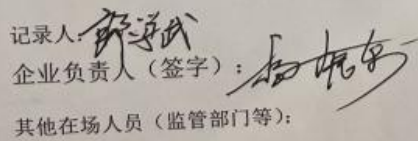 记录人:
企业负责人（签字）:
其他在场人员（监管部门等）: